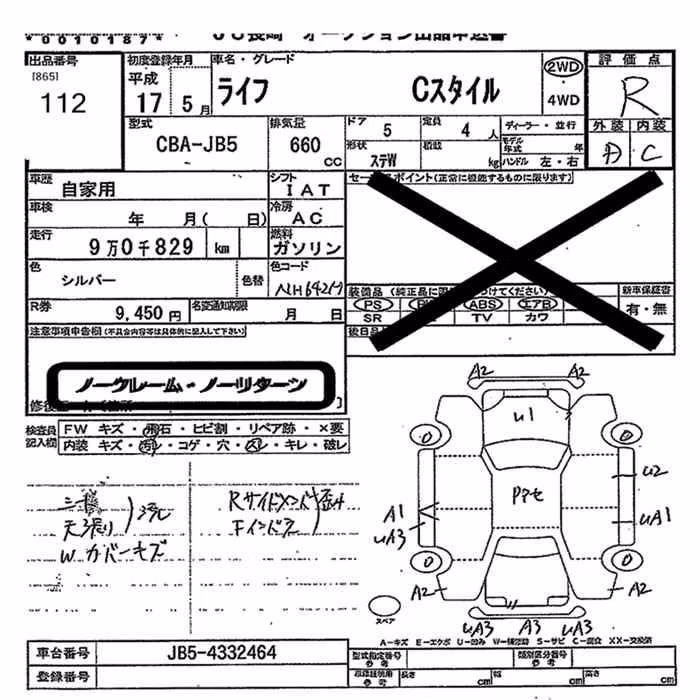 *0010187* JU長崎 オークション出品申込書
出品番号 初度登録年月 車名・グレード 2WD 評価点
[865] 平成 ライフ Cスタイル 4WD R
112 17 5月 外装 内装
型式 排気量 ドア 5 定員 4人 ディーラー・並行
CBA-JB5 660 CC 形状 ステW 積載 kg モデル年式 年 ハンドル 左・右 C
車歴 自家用 シフト IAT セールスポイント(正常に機能するものに限ります)
車検 年 月( 日) 冷房 AC
走行 9万0千829 km 燃料 ガソリン
色 シルバー 色替 色コード NH642M
装備品 (純正品に限 つけてください) 新車保証書
PS ABS エアB 有・無
SR TV カワ
R券 9,450円 名変通知期限 月 日 後日品
注意事項申告欄(不具合内容等は具体的に記入して下さい)
ノークレーム・ノーリターン
検査員記入欄 FW キズ・飛石・ヒビ割・リペア跡・×要
内装 キズ・汚れ・コゲ・穴・スレ・キレ・破レ
天張り
Wカバーキズ
Rサイドメンバ
Fインドア
A2 A2
U1
0 0
U2
Pアセ
A1
UA3
UA1
0 0
A2 A2
UA3 A3 UA3
スペア
A-キズ E-エクボ U-凹み W-補修跡 S-サビ C-腐食 XX-交換済
車台番号 JB5-4332464 型式指定番号 参考 類別区分番号 参考
登録番号 車両証明用 参考 長さ cm 幅 cm 高さ cm